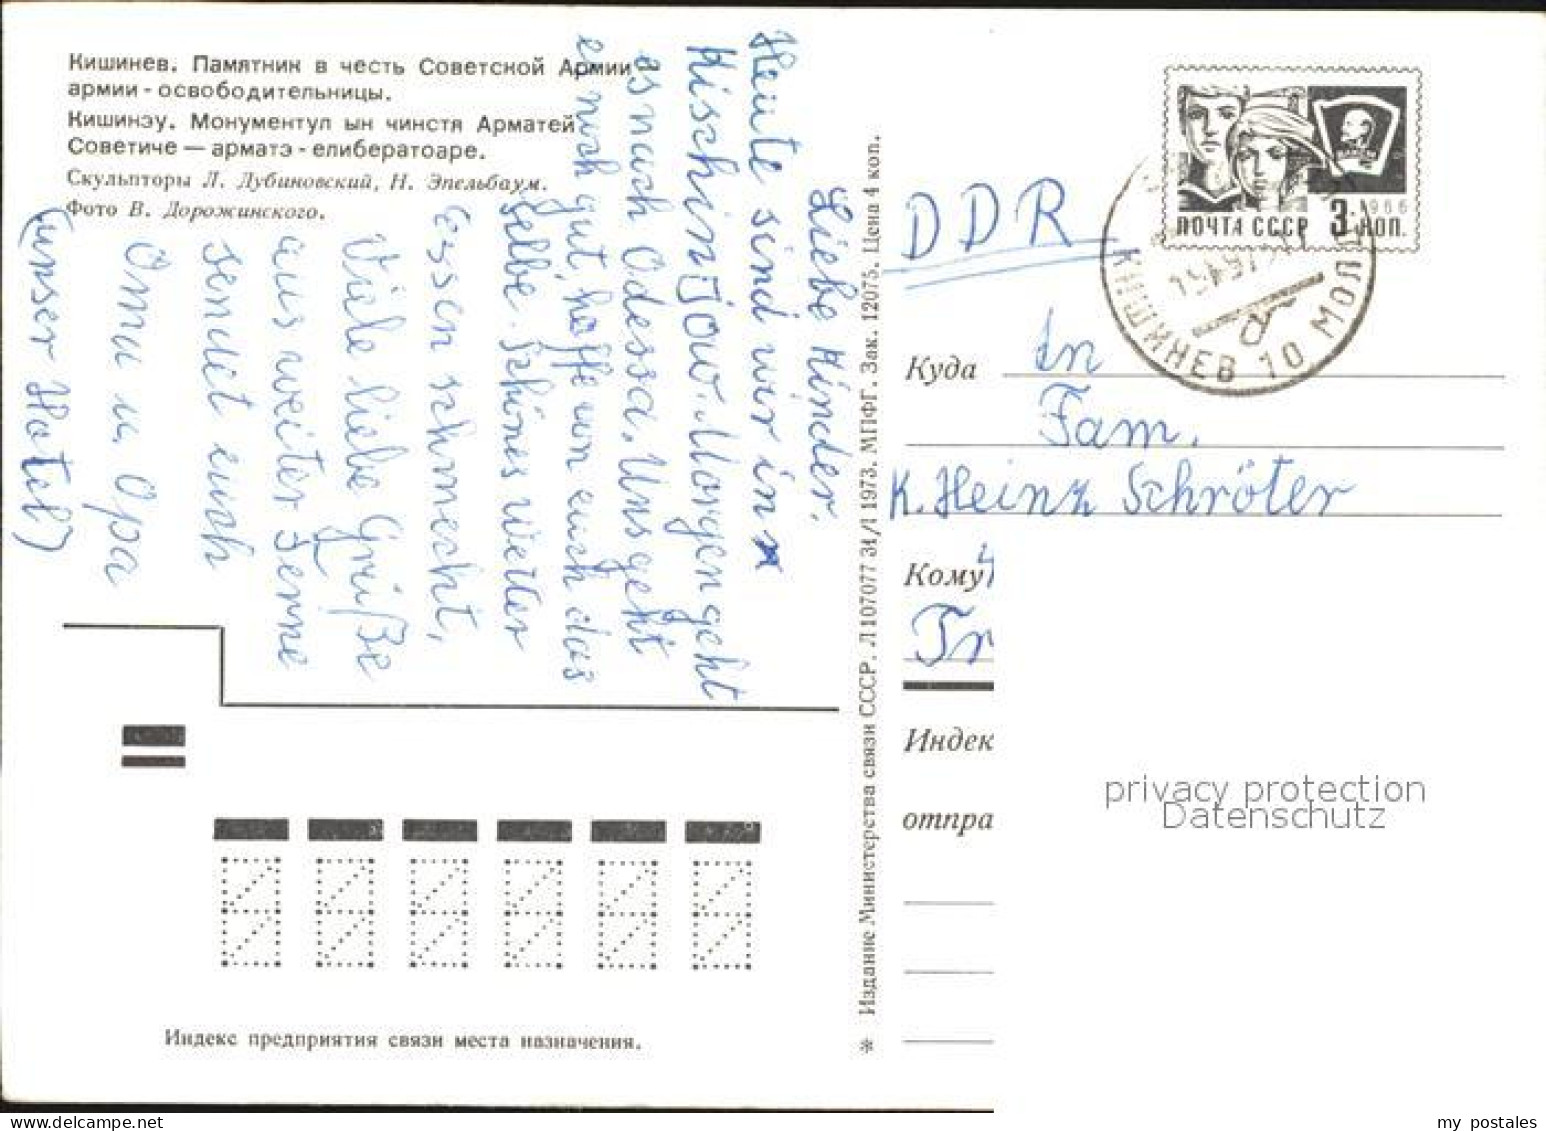 Кишинев. Памятник в честь Советской Армии
армии - освободительницы.
Кишинэу. Монументул ын чинстя Арматей
Советиче — арматэ - елибератоаре.
Скульпторы Л. Дубиновский, Н. Эпельбаум.
Фото В. Дорожинского.
Liebe Kinder.
Heute sind wir in
Kischinjow. Morgen geht
es nach Odessa. Uns geht
es noch gut, hoffe von euch das
selbe. Schönes Wetter
essen schmeckt,
Viele liebe Grüße
aus weiter Ferne
sendet euch
Omu u. Opa
(unser Hotel)
Индекс предприятия связи места назначения.
* Издание Министерства связи СССР. Л 107077 31/I 1973. МПФГ. Зак. 12075. Цена 4 коп.
1966
ПОЧТА СССР 3 КОП.
КИШИНЕВ 10 МОЛ
DDR
Куда
In
Fam.
K. Heinz Schröter
Кому
Tr
Индек
отпра
privacy protection
Datenschutz
my postales